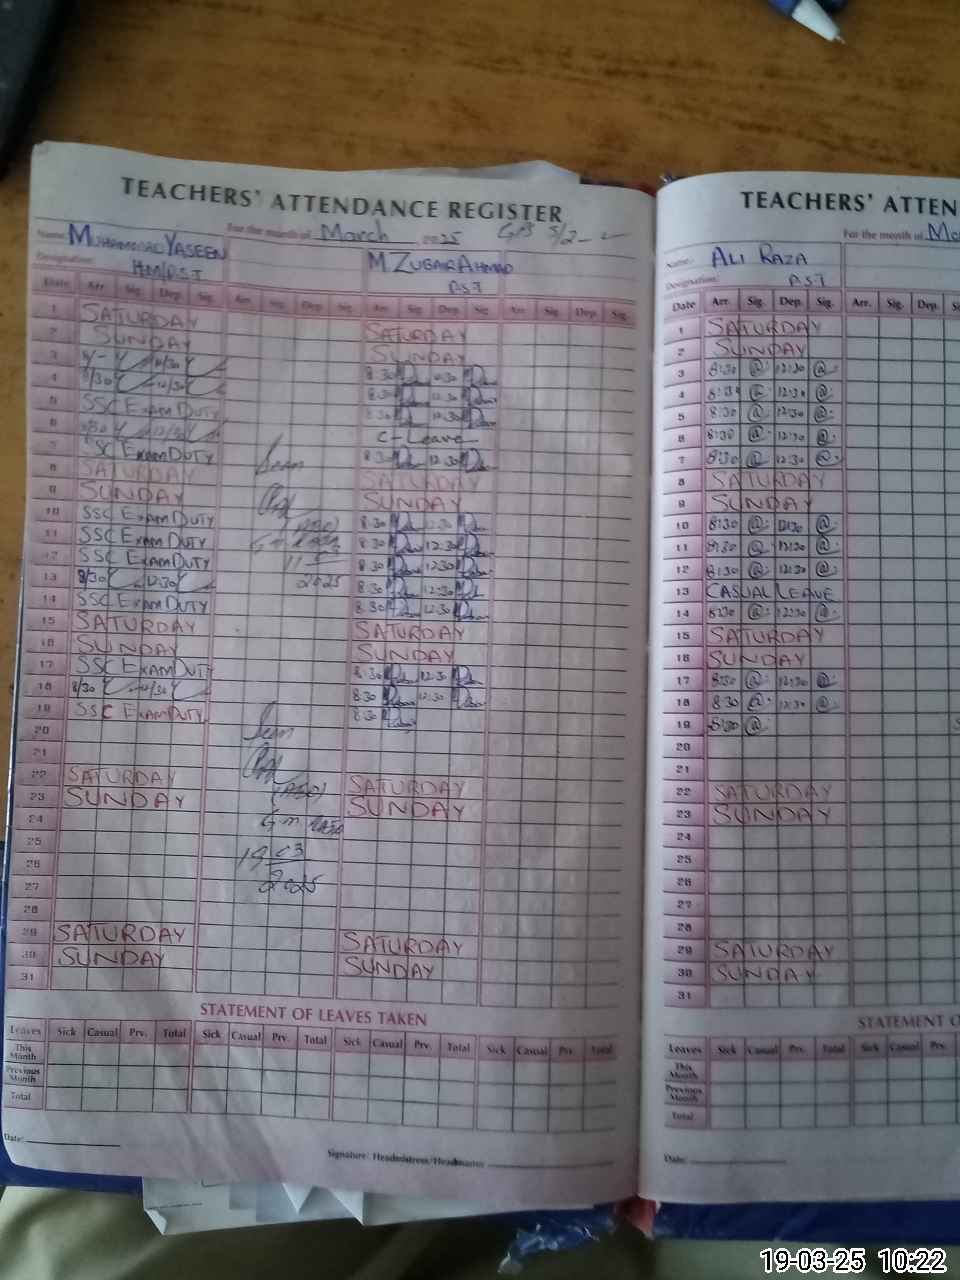 TEACHERS' ATTENDANCE REGISTER
Name: MUHAMMAD YASEEN For the month of March 2025
Designation: HM/PST
M. ZUBAIR AHMAD
PST
Date Arr. Sig. Dep. Sig. Arr. Sig. Dep. Sig. Arr. Sig. Dep. Sig. Arr. Sig. Dep. Sig.
1 SATURDAY SATURDAY
2 SUNDAY SUNDAY
3 8:30 12:30
4 8/30 12/30 8:30 12:30
5 SSC EXAM DUTY 8:30 12:30
6 8/30 12/30 C-Leave
7 SSC EXAM DUTY 8:30 12:30
8 SATURDAY SATURDAY
9 SUNDAY SUNDAY
10 SSC EXAM DUTY 8:30 12:30
11 SSC EXAM DUTY 8:30 12:30
12 SSC EXAM DUTY 8:30 12:30
13 8/30 12:30 8:30 12:30
14 SSC EXAM DUTY 8:30 12:30
15 SATURDAY SATURDAY
16 SUNDAY SUNDAY
17 SSC EXAM DUTY 8:30 12:30
18 8/30 12/30 8:30 12:30
19 SSC EXAM DUTY 8:30
20
21
22 SATURDAY SATURDAY
23 SUNDAY SUNDAY
24
25
26
27
28
29 SATURDAY SATURDAY
30 SUNDAY SUNDAY
31
Seen
2025
Seen
19 03
2025
STATEMENT OF LEAVES TAKEN
Leaves Sick Casual Prv. Total Sick Casual Prv. Total Sick Casual Prv. Total Sick Casual Prv. Total
This Month
Previous Month
Total
Date:
Signature: Headmistress/Headmaster
TEACHERS' ATTEN
For the month of Ma
Name: ALI RAZA
Designation: PST
Date Arr. Sig. Dep. Sig. Arr. Sig. Dep.
1 SATURDAY
2 SUNDAY
3 8:30 12:30
4 8:30 12:30
5 8:30 12:30
6 8:30 12:30
7 8:30 12:30
8 SATURDAY
9 SUNDAY
10 8:30 12:30
11 8:30 12:30
12 8:30 12:30
13 CASUAL LEAVE
14 8:30 12:30
15 SATURDAY
16 SUNDAY
17 8:30 12:30
18 8:30 12:30
19 8:30
20
21
22 SATURDAY
23 SUNDAY
24
25
26
27
28
29 SATURDAY
30 SUNDAY
31
STATEMENT O
Leaves Sick Casual Prv. Total Sick Casual Prv.
This Month
Previous Month
Total
Date:
19-03-25 10:22